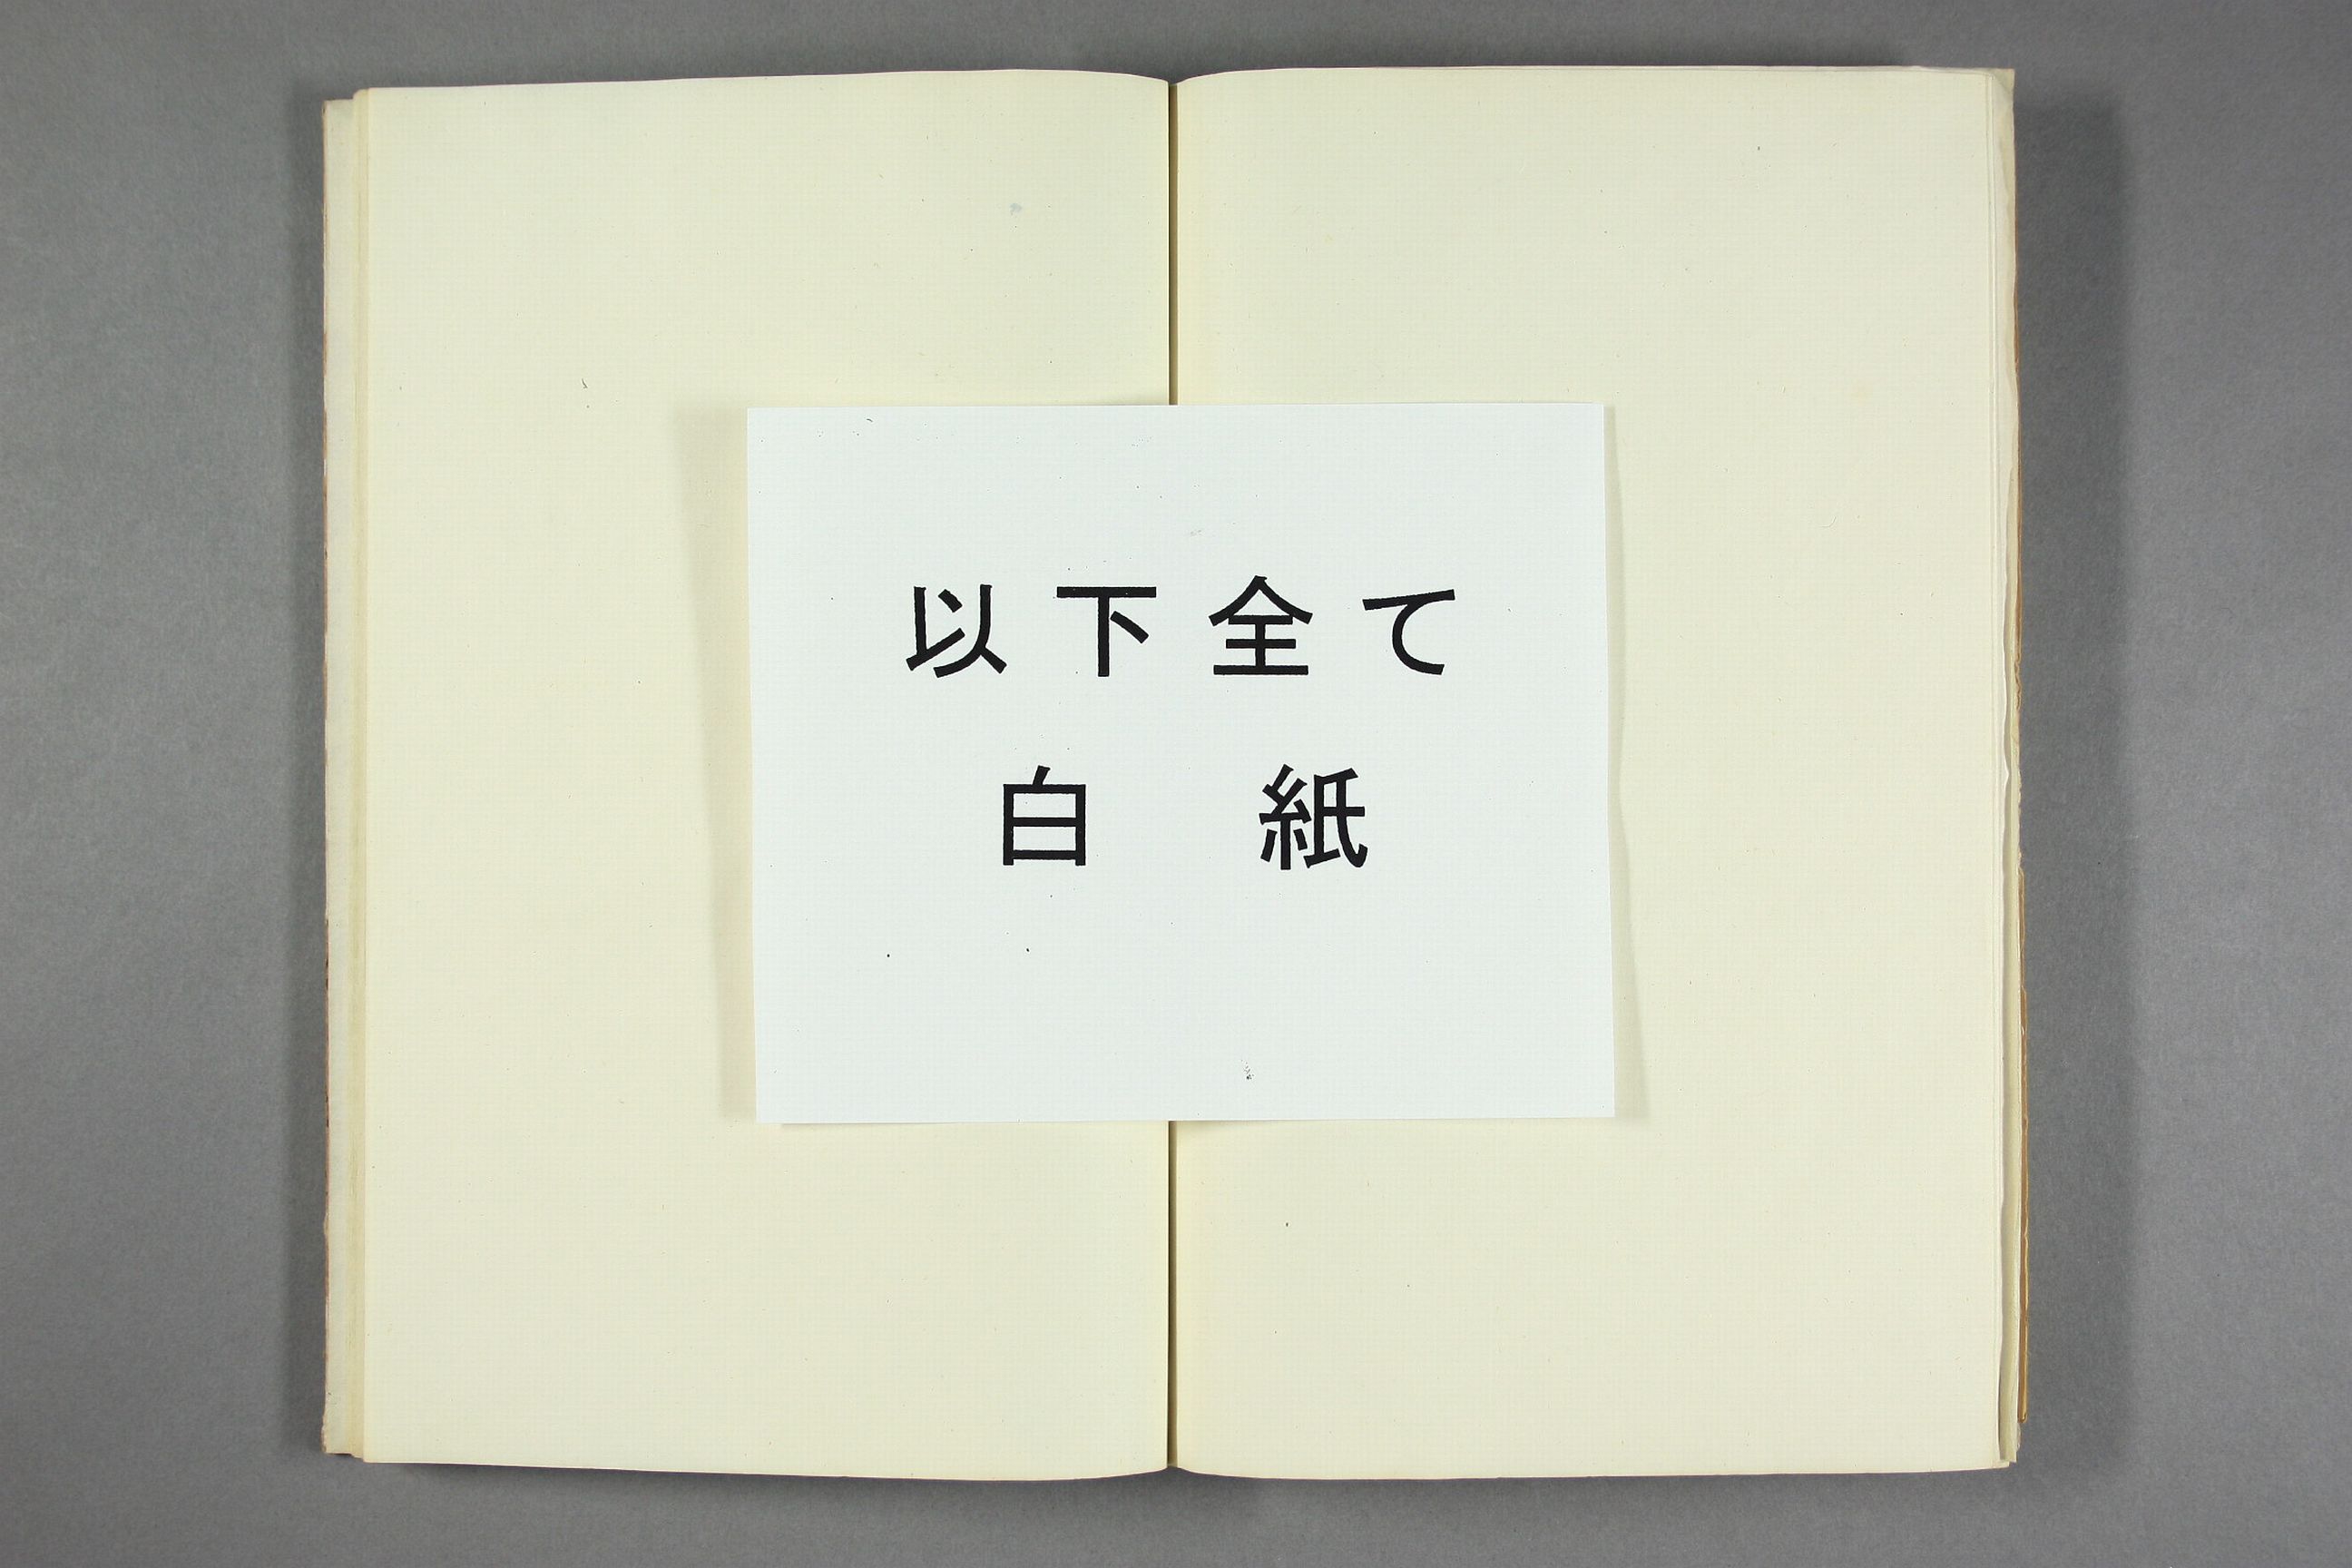 以下全て
白 紙